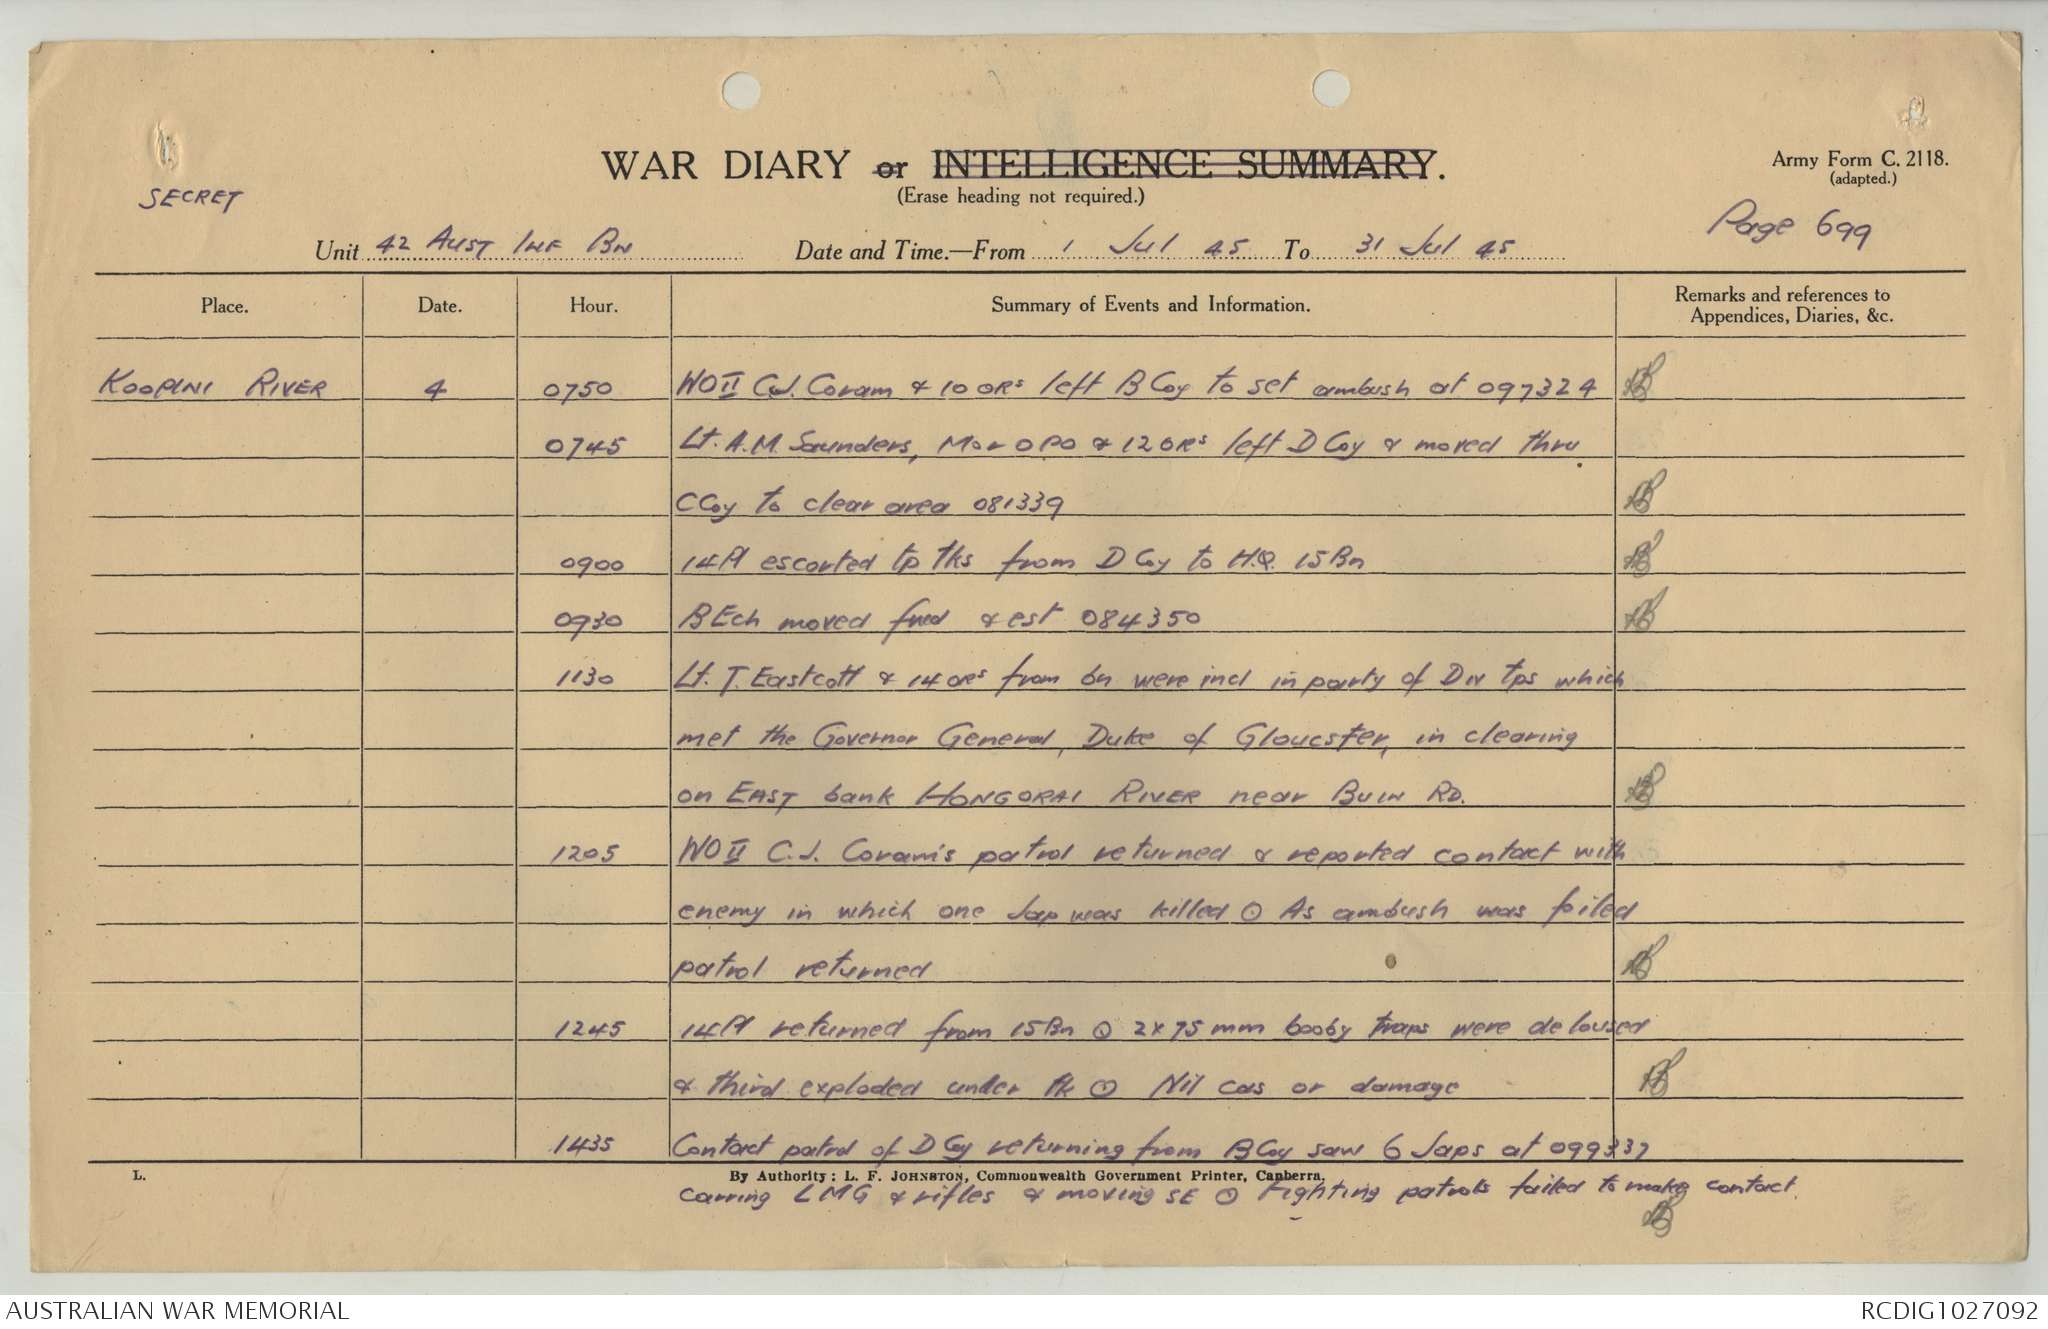 WAR DIARY or INTELLIGENCE SUMMARY.
(Erase heading not required.)
Army Form C. 2118.
(adapted.)
SECRET
Page 699
Unit 42 AUST INF BN Date and Time.—From 1 Jul 45 To 31 Jul 45
Place. Date. Hour. Summary of Events and Information. Remarks and references to Appendices, Diaries, &c.
KOOPANI RIVER 4 0750 WO II C.J. Coram & 10 ORs left B Coy to set ambush at 097324
0745 Lt. A.M. Saunders, Mor OPO & 12 ORs left D Coy & moved thru
C Coy to clear area 081339
0900 14 Pl escorted tp tks from D Coy to H.Q. 15 Bn
0930 B Ech moved fwd & est 084350
1130 Lt. T. Eastcott & 14 ORs from bn were incl in party of Div tps which
met the Governor General, Duke of Gloucster, in clearing
on EAST bank HONGORAI RIVER near BUIN RD.
1205 WO II C.J. Coram's patrol returned & reported contact with
enemy in which one Jap was killed ⊙ As ambush was foiled
patrol returned
1245 14 Pl returned from 15 Bn ⊙ 2 x 75 mm booby traps were deloused
& third exploded under tk ⊙ Nil cas or damage
1435 Contact patrol of D Coy returning from B Coy saw 6 Japs at 099337
L. By Authority: L. F. JOHNSTON, Commonwealth Government Printer, Canberra.
carring LMG & rifles & moving SE ⊙ Fighting patrols failed to make contact.
AUSTRALIAN WAR MEMORIAL RCDIG1027092